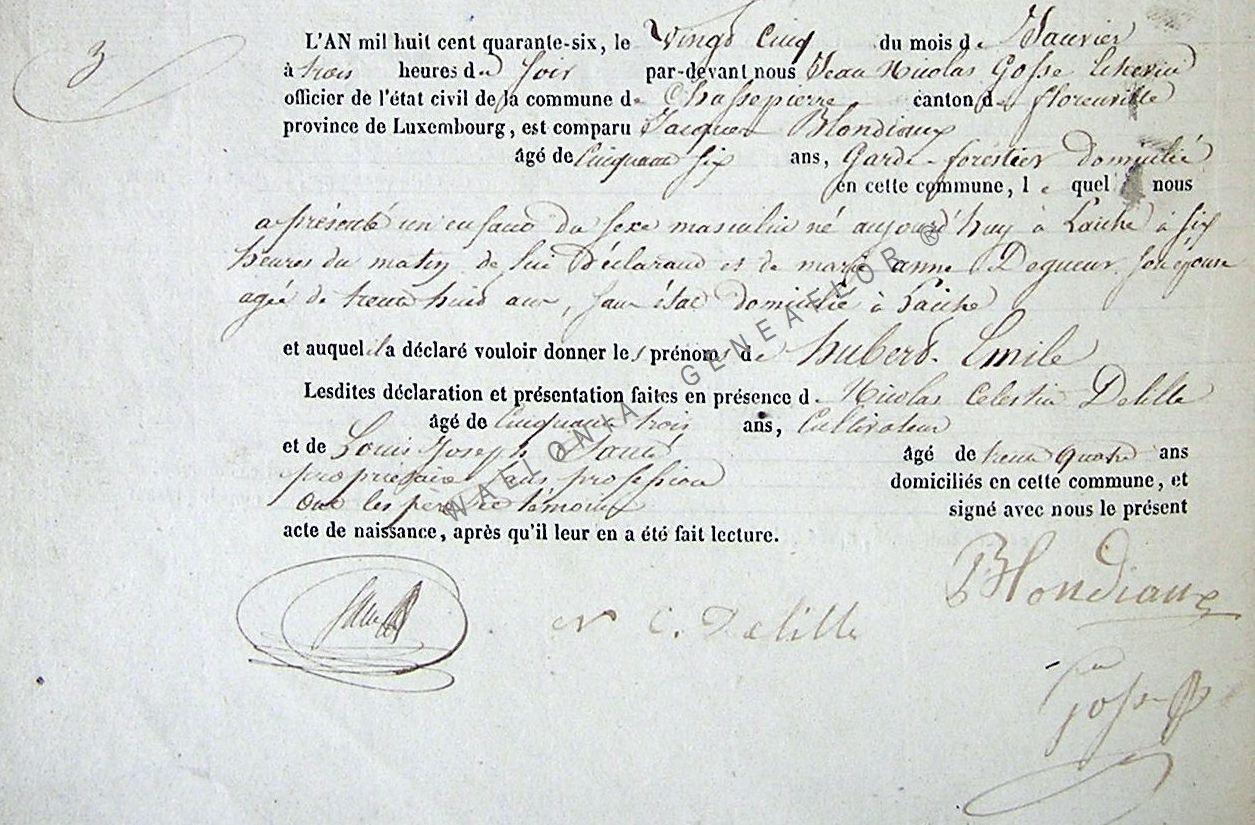 3
L'AN mil huit cent quarante-six, le Vingt Cinq du mois de Janvier
à trois heures du Soir par-devant nous Jean Nicolas Gosse Echevin
officier de l'état civil de la commune de Chassepierre canton de florenville
province de Luxembourg, est comparu Jacques Blondiaux
âgé de Cinquante Six ans, Garde forestier domicilié
en cette commune, l e quel nous
a présenté un enfant du sexe masculin né aujourd'huy à Laiche à six
heures du matin de lui Déclarant et de marie anne Degueur son épouse
agée de trente huit ans, sans état domiciliée à Laiche
et auquel il a déclaré vouloir donner les prénoms de hubert Emile
Lesdites déclaration et présentation faites en présence de Nicolas Celestin Delille
âgé de Cinquante trois ans, Cultivateur
et de Louis Joseph âgé de trente quatre ans
propriétaire sans profession domiciliés en cette commune, et
ont les père et témoins signé avec nous le présent
acte de naissance, après qu'il leur en a été fait lecture.
Blondiaux
N C. Delille
Gosse
WALLONIA GENEAFLOR ®